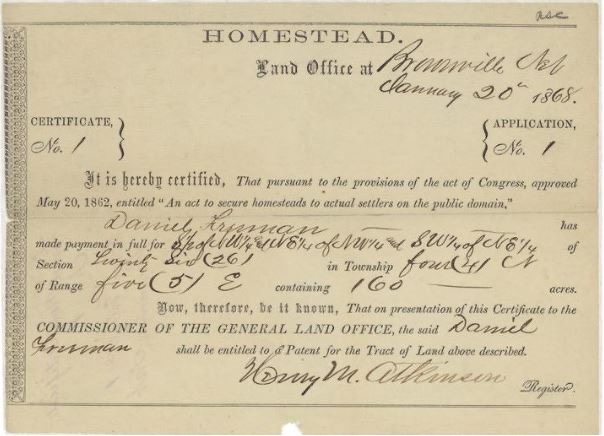 asc
HOMESTEAD.
Land Office at Brownville Neb
January 20th 1868.
CERTIFICATE, No. 1
APPLICATION, No. 1
It is hereby certified, That pursuant to the provisions of the act of Congress, approved
May 20, 1862, entitled "An act to secure homesteads to actual settlers on the public domain,"
Daniel Freeman has
made payment in full for S½ of NW¼ & NE¼ of NW¼ and SW¼ of NE¼ of
Section Twenty Six (26) in Township four (4) N
of Range five (5) E containing 160 acres.
Now, therefore, be it known, That on presentation of this Certificate to the
COMMISSIONER OF THE GENERAL LAND OFFICE, the said Daniel
Freeman shall be entitled to a Patent for the Tract of Land above described.
Henry M. Atkinson
Register.